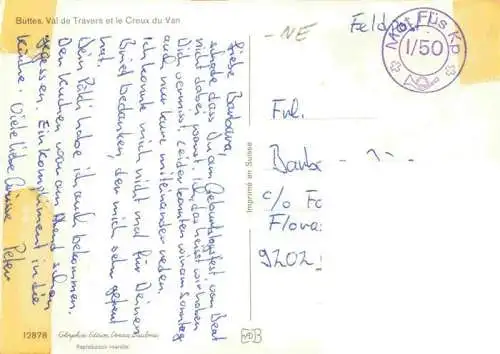 Buttes. Val de Travers et le Creux du Van
Liebe Barbara,
schade dass Du am Geburtstagsfest vom Beat
nicht dabei warst. Ich, das heisst wir haben
Dich vermisst. Leider konnten wir am Sonntag
auch nur kurz miteinander reden.
Ich konnte mich nicht mal für Deinen
Brief bedanken, der mich sehr gefreut
hat.
Dein Päckli habe ich auch bekommen.
Den Kuchen war am Abend schon
gegessen. Ein Kompliment in die
Küche. Viele liebe Grüsse Peter
12878
Reproduction interdite
Imprimé en Suisse
-NE
Feldpost
Mot Füs Kp
I/50
Frl.
Barba
c/o Fa
Flora
9202